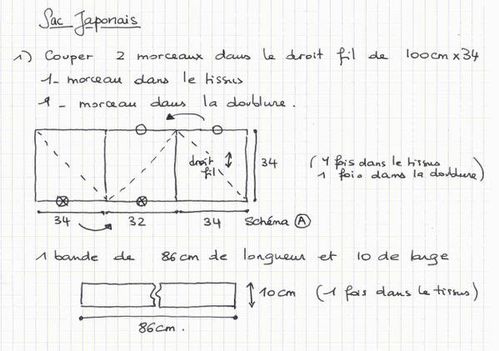 Sac Japonais
1) Couper 2 morceaux dans le droit fil de 100cm x 34
1 - morceau dans le tissus
1 - morceau dans la doublure.
droit
fil
34
(1 fois dans le tissus
1 fois dans la doublure)
34
32
34
Schéma A
1 bande de 86cm de longueur et 10 de large
10cm
(1 fois dans le tissus)
86cm.